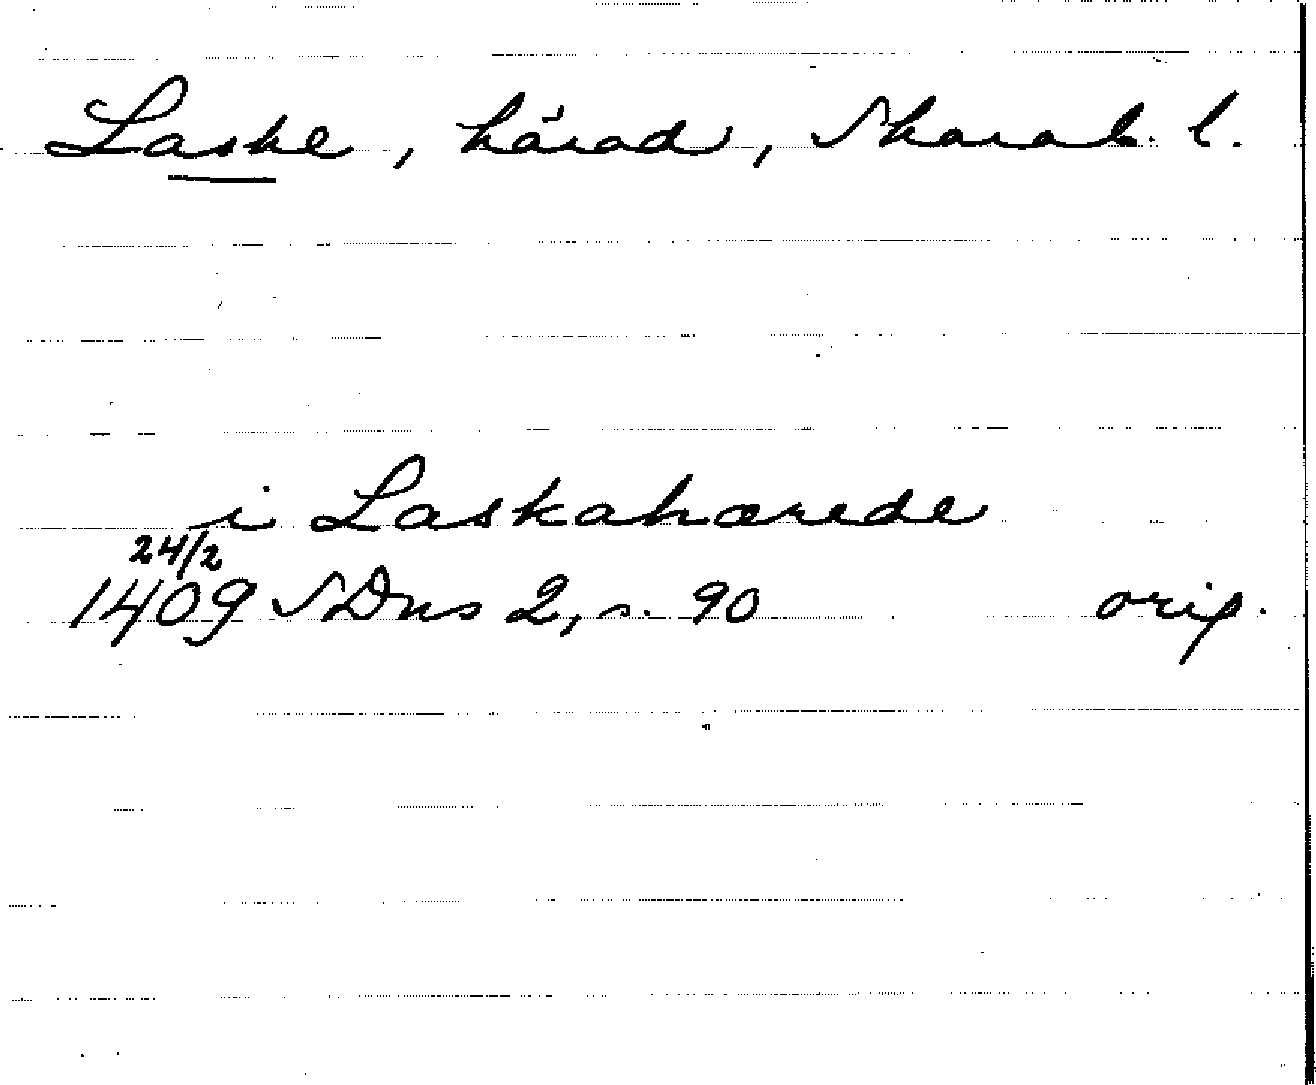 Laske, härad, Skarab. l.
i Laskahærede
24/2
1409 SDns 2, s. 90 orig.